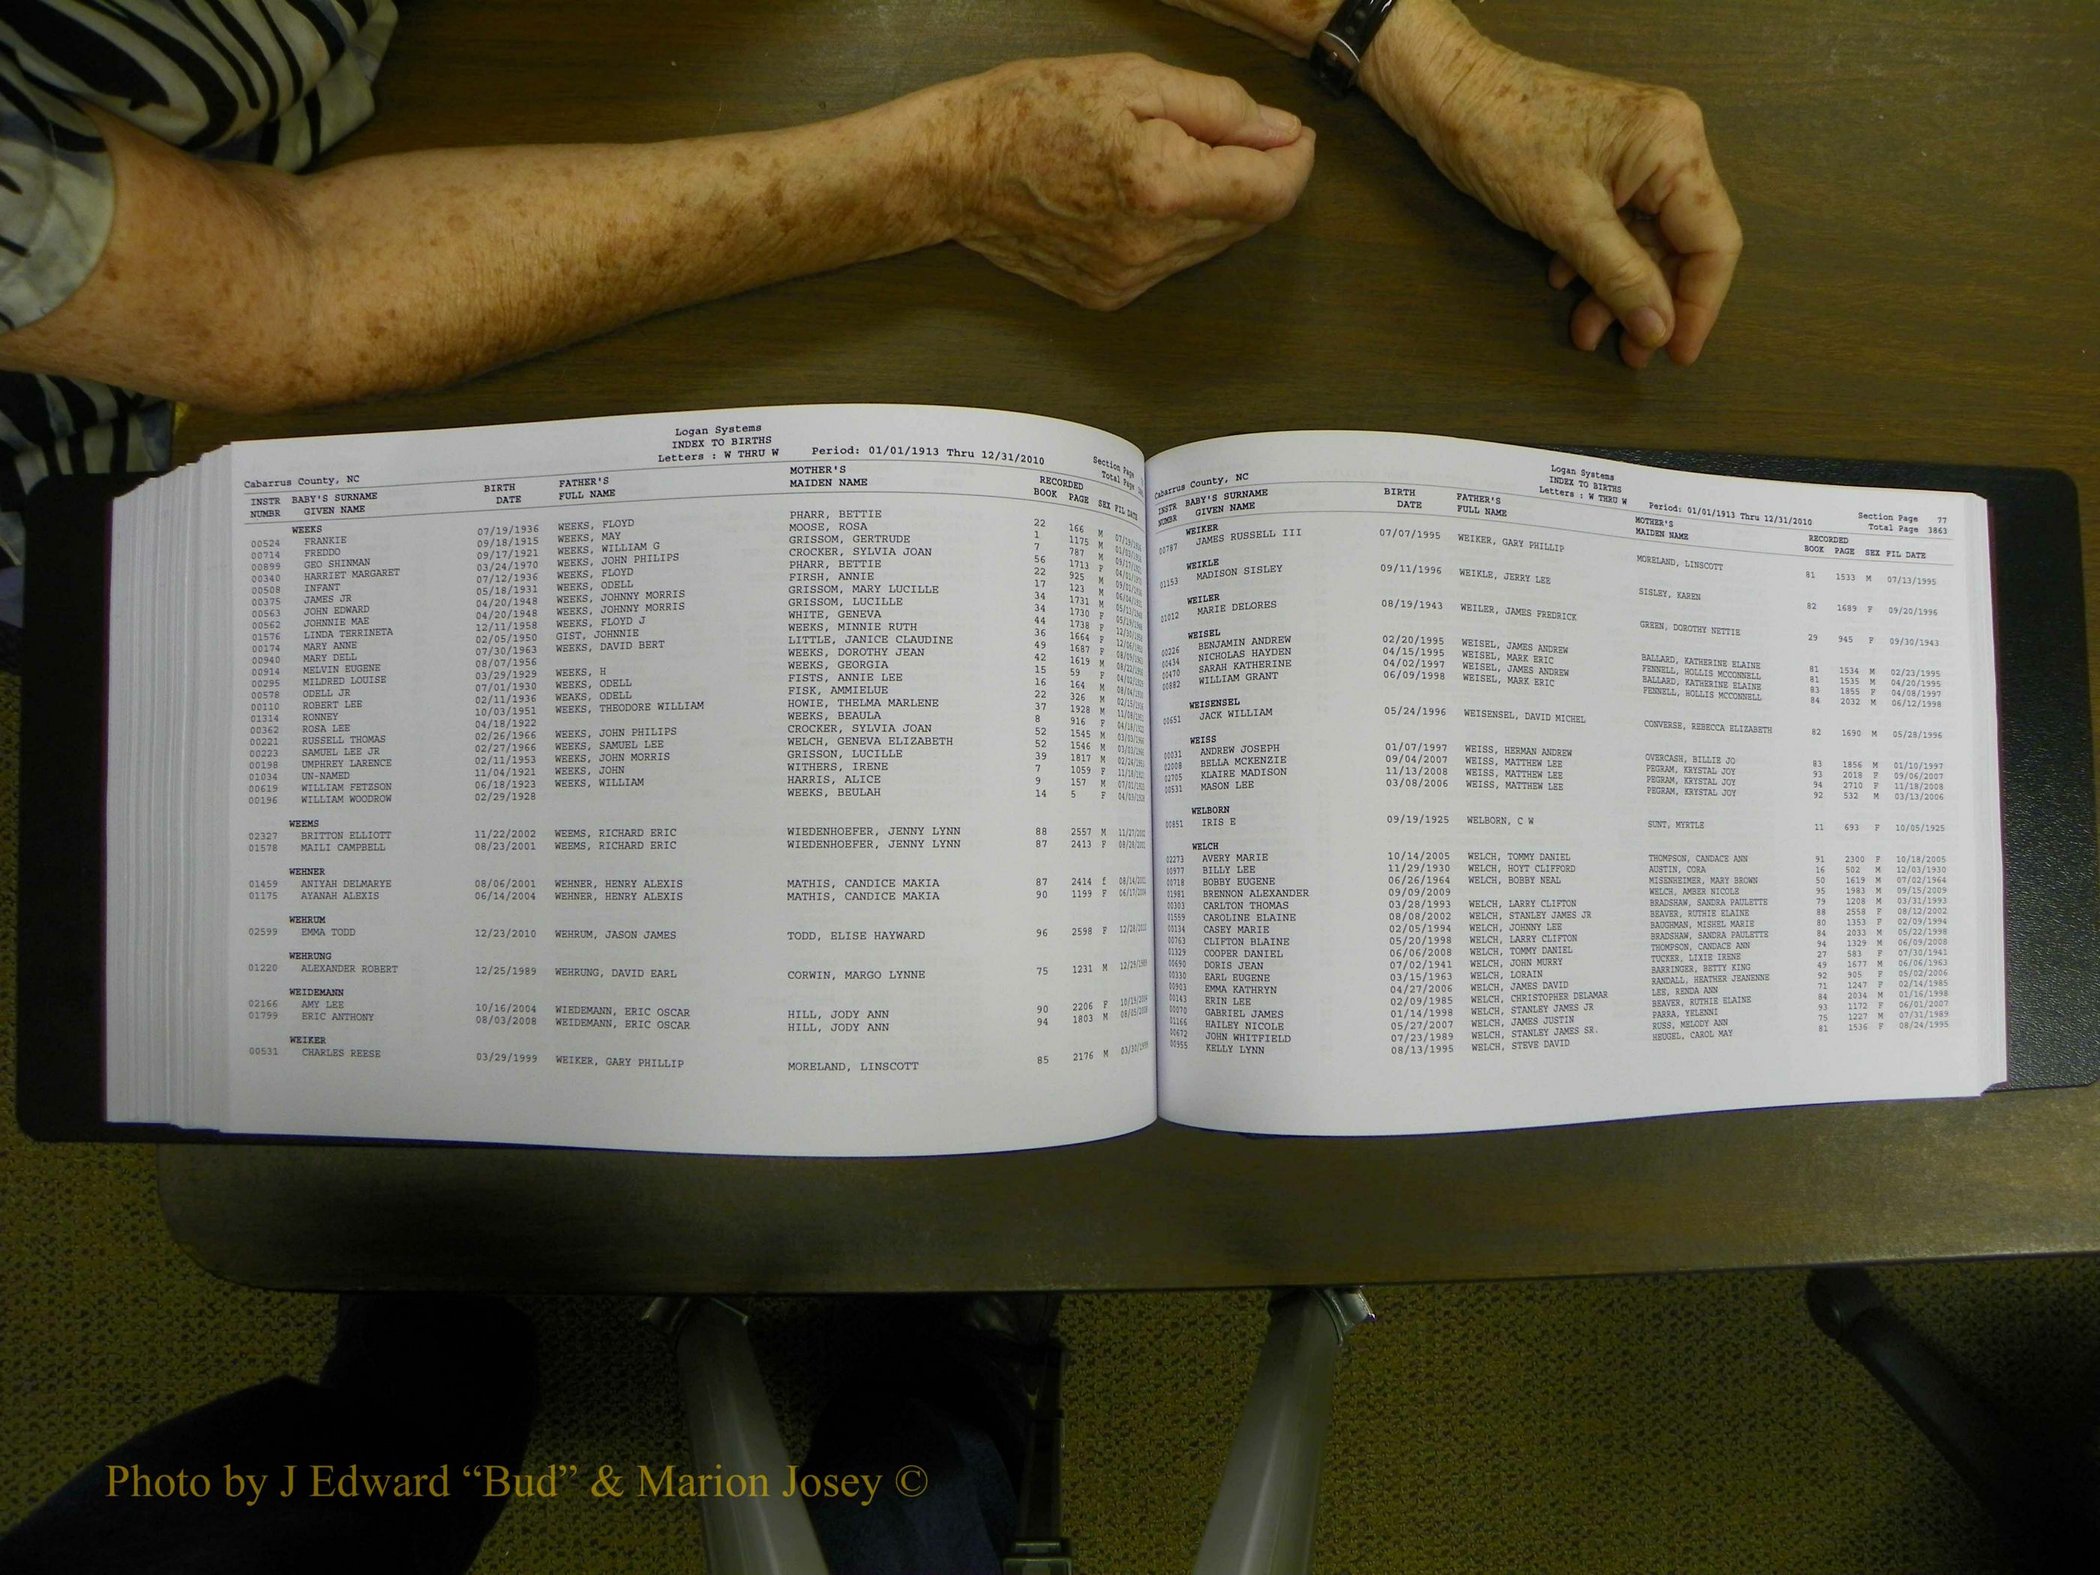 Logan Systems
INDEX TO BIRTHS
Letters : W THRU W Period: 01/01/1913 Thru 12/31/2010 Section Page
Cabarrus County, NC Total Page
INSTR BABY'S SURNAME BIRTH FATHER'S MOTHER'S RECORDED
NUMBR GIVEN NAME DATE FULL NAME MAIDEN NAME BOOK PAGE SEX FIL DATE
WEEKS
00524 FRANKIE 07/19/1936 WEEKS, FLOYD PHARR, BETTIE 22 166 M
00714 FREDDO 09/18/1915 WEEKS, MAY MOOSE, ROSA 1 1175 M
00899 GEO SHINMAN 09/17/1921 WEEKS, WILLIAM G GRISSOM, GERTRUDE 7 787 M
00340 HARRIET MARGARET 03/24/1970 WEEKS, JOHN PHILIPS CROCKER, SYLVIA JOAN 56 1713 F
00508 INFANT 07/12/1936 WEEKS, FLOYD PHARR, BETTIE 22 925 M
00375 JAMES JR 05/18/1931 WEEKS, ODELL FIRSH, ANNIE 17 123 M
00563 JOHN EDWARD 04/20/1948 WEEKS, JOHNNY MORRIS GRISSOM, MARY LUCILLE 34 1731 M
00562 JOHNNIE MAE 04/20/1948 WEEKS, JOHNNY MORRIS GRISSOM, LUCILLE 34 1730 F
01576 LINDA TERRINETA 12/11/1958 WEEKS, FLOYD J WHITE, GENEVA 44 1738 F
00174 MARY ANNE 02/05/1950 GIST, JOHNNIE WEEKS, MINNIE RUTH 36 1664 F
00940 MARY DELL 07/30/1963 WEEKS, DAVID BERT LITTLE, JANICE CLAUDINE 49 1687 F
00914 MELVIN EUGENE 08/07/1956 WEEKS, DOROTHY JEAN 42 1619 M
00295 MILDRED LOUISE 03/29/1929 WEEKS, H WEEKS, GEORGIA 15 59 F
00578 ODELL JR 07/01/1930 WEEKS, ODELL FISTS, ANNIE LEE 16 164 M
00110 ROBERT LEE 02/11/1936 WEAKS, ODELL FISK, AMMIELUE 22 326 M
01314 RONNEY 10/03/1951 WEEKS, THEODORE WILLIAM HOWIE, THELMA MARLENE 37 1928 M
00362 ROSA LEE 04/18/1922 WEEKS, BEAULA 8 916 F
00221 RUSSELL THOMAS 02/26/1966 WEEKS, JOHN PHILIPS CROCKER, SYLVIA JOAN 52 1545 M
00223 SAMUEL LEE JR 02/27/1966 WEEKS, SAMUEL LEE WELCH, GENEVA ELIZABETH 52 1546 M
00198 UMPHREY LARENCE 02/11/1953 WEEKS, JOHN MORRIS GRISSON, LUCILLE 39 1817 M
01034 UN-NAMED 11/04/1921 WEEKS, JOHN WITHERS, IRENE 7 1059 F
00619 WILLIAM FETZSON 06/18/1923 WEEKS, WILLIAM HARRIS, ALICE 9 157 M
00196 WILLIAM WOODROW 02/29/1928 WEEKS, BEULAH 14 5 F
WEEMS
02327 BRITTON ELLIOTT 11/22/2002 WEEMS, RICHARD ERIC WIEDENHOEFER, JENNY LYNN 88 2557 M 11/27/2002
01578 MAILI CAMPBELL 08/23/2001 WEEMS, RICHARD ERIC WIEDENHOEFER, JENNY LYNN 87 2413 F 08/28/2001
WEHNER
01459 ANIYAH DELMARYE 08/06/2001 WEHNER, HENRY ALEXIS MATHIS, CANDICE MAKIA 87 2414 f 08/14/2001
01175 AYANAH ALEXIS 06/14/2004 WEHNER, HENRY ALEXIS MATHIS, CANDICE MAKIA 90 1199 F 06/17/2004
WEHRUM
02599 EMMA TODD 12/23/2010 WEHRUM, JASON JAMES TODD, ELISE HAYWARD 96 2598 F 12/28/2010
WEHRUNG
01220 ALEXANDER ROBERT 12/25/1989 WEHRUNG, DAVID EARL CORWIN, MARGO LYNNE 75 1231 M 12/29/1989
WEIDEMANN
02166 AMY LEE 10/16/2004 WIEDEMANN, ERIC OSCAR HILL, JODY ANN 90 2206 F 10/19/2004
01799 ERIC ANTHONY 08/03/2008 WEIDEMANN, ERIC OSCAR HILL, JODY ANN 94 1803 M 08/05/2008
WEIKER
00531 CHARLES REESE 03/29/1999 WEIKER, GARY PHILLIP MORELAND, LINSCOTT 85 2176 M 03/30/1999
Logan Systems
INDEX TO BIRTHS
Letters : W THRU W Period: 01/01/1913 Thru 12/31/2010 Section Page 77
Cabarrus County, NC Total Page 3863
INSTR BABY'S SURNAME BIRTH FATHER'S MOTHER'S RECORDED
NUMBR GIVEN NAME DATE FULL NAME MAIDEN NAME BOOK PAGE SEX FIL DATE
WEIKER
00787 JAMES RUSSELL III 07/07/1995 WEIKER, GARY PHILLIP MORELAND, LINSCOTT 81 1533 M 07/13/1995
WEIKLE
01153 MADISON SISLEY 09/11/1996 WEIKLE, JERRY LEE SISLEY, KAREN 82 1689 F 09/20/1996
WEILER
01012 MARIE DELORES 08/19/1943 WEILER, JAMES FREDRICK GREEN, DOROTHY NETTIE 29 945 F 09/30/1943
WEISEL
00226 BENJAMIN ANDREW 02/20/1995 WEISEL, JAMES ANDREW BALLARD, KATHERINE ELAINE 81 1534 M 02/23/1995
00434 NICHOLAS HAYDEN 04/15/1995 WEISEL, MARK ERIC FENNELL, HOLLIS MCCONNELL 81 1535 M 04/20/1995
00470 SARAH KATHERINE 04/02/1997 WEISEL, JAMES ANDREW BALLARD, KATHERINE ELAINE 83 1855 F 04/08/1997
00882 WILLIAM GRANT 06/09/1998 WEISEL, MARK ERIC FENNELL, HOLLIS MCCONNELL 84 2032 M 06/12/1998
WEISENSEL
00651 JACK WILLIAM 05/24/1996 WEISENSEL, DAVID MICHEL CONVERSE, REBECCA ELIZABETH 82 1690 M 05/28/1996
WEISS
00031 ANDREW JOSEPH 01/07/1997 WEISS, HERMAN ANDREW OVERCASH, BILLIE JO 83 1856 M 01/10/1997
02008 BELLA MCKENZIE 09/04/2007 WEISS, MATTHEW LEE PEGRAM, KRYSTAL JOY 93 2018 F 09/06/2007
02705 KLAIRE MADISON 11/13/2008 WEISS, MATTHEW LEE PEGRAM, KRYSTAL JOY 94 2710 F 11/18/2008
00531 MASON LEE 03/08/2006 WEISS, MATTHEW LEE PEGRAM, KRYSTAL JOY 92 532 M 03/13/2006
WELBORN
00851 IRIS E 09/19/1925 WELBORN, C W SUNT, MYRTLE 11 693 F 10/05/1925
WELCH
02273 AVERY MARIE 10/14/2005 WELCH, TOMMY DANIEL THOMPSON, CANDACE ANN 91 2300 F 10/18/2005
00977 BILLY LEE 11/29/1930 WELCH, HOYT CLIFFORD AUSTIN, CORA 16 502 M 12/03/1930
00718 BOBBY EUGENE 06/26/1964 WELCH, BOBBY NEAL MISENHEIMER, MARY BROWN 50 1619 M 07/02/1964
01981 BRENNON ALEXANDER 09/09/2009 WELCH, AMBER NICOLE 95 1983 M 09/15/2009
00303 CARLTON THOMAS 03/28/1993 WELCH, LARRY CLIFTON BRADSHAW, SANDRA PAULETTE 79 1208 M 03/31/1993
01559 CAROLINE ELAINE 08/08/2002 WELCH, STANLEY JAMES JR BEAVER, RUTHIE ELAINE 88 2558 F 08/12/2002
00134 CASEY MARIE 02/05/1994 WELCH, JOHNNY LEE BAUGHMAN, MISHEL MARIE 80 1353 F 02/09/1994
00763 CLIFTON BLAINE 05/20/1998 WELCH, LARRY CLIFTON BRADSHAW, SANDRA PAULETTE 84 2033 M 05/22/1998
01329 COOPER DANIEL 06/06/2008 WELCH, TOMMY DANIEL THOMPSON, CANDACE ANN 94 1329 M 06/09/2008
00690 DORIS JEAN 07/02/1941 WELCH, JOHN MURRY TUCKER, LIXIE IRENE 27 583 F 07/30/1941
00330 EARL EUGENE 03/15/1963 WELCH, LORAIN BARRINGER, BETTY KING 49 1677 M 06/06/1963
00903 EMMA KATHRYN 04/27/2006 WELCH, JAMES DAVID RANDALL, HEATHER JEANENNE 92 905 F 05/02/2006
00143 ERIN LEE 02/09/1985 WELCH, CHRISTOPHER DELAMAR LEE, RENDA ANN 71 1247 F 02/14/1985
00070 GABRIEL JAMES 01/14/1998 WELCH, STANLEY JAMES JR BEAVER, RUTHIE ELAINE 84 2034 M 01/16/1998
01166 HAILEY NICOLE 05/27/2007 WELCH, JAMES JUSTIN PARRA, YELENNI 93 1172 F 06/01/2007
00672 JOHN WHITFIELD 07/23/1989 WELCH, STANLEY JAMES SR. RUSS, MELODY ANN 75 1227 M 07/31/1989
00955 KELLY LYNN 08/13/1995 WELCH, STEVE DAVID HEUGEL, CAROL MAY 81 1536 F 08/24/1995
Photo by J Edward “Bud” & Marion Josey ©